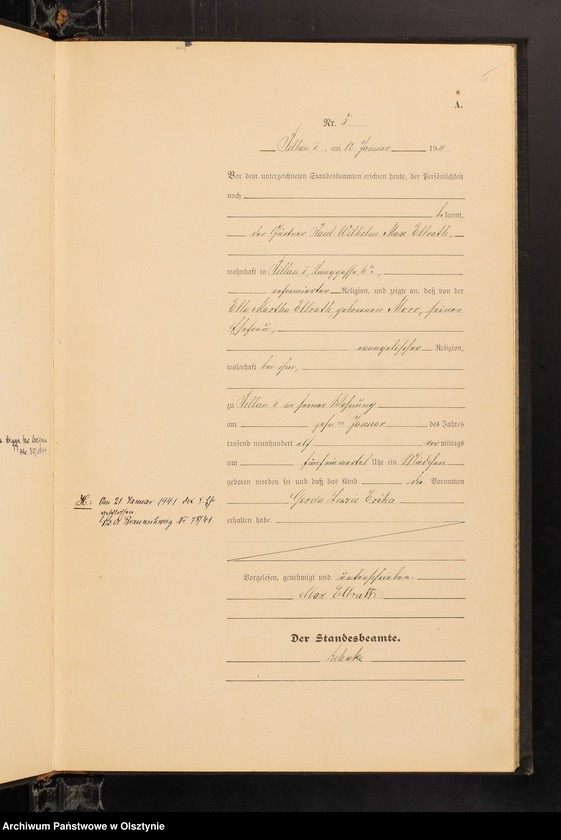 A.
Nr. 5
Pillau I, am 12. Januar 1911
Vor dem unterzeichneten Standesbeamten erschien heute, der Persönlichkeit
nach
bekannt,
der Gärtner Paul Wilhelm Max Ellrath,
wohnhaft in Pillau I, Langgasse 6
reformierter Religion, und zeigte an, daß von der
Ella Martha Ellrath, geborenen Morr, seiner
Ehefrau,
evangelischer Religion,
wohnhaft bei ihm,
zu Pillau I in seiner Wohnung
am zehnten Januar des Jahres
tausend neunhundert elf vormittags
um Uhr ein Mädchen
geboren worden sei und daß das Kind die Vornamen
Gerda Erika
erhalten habe.
Vorgelesen, genehmigt und unterschrieben
Max Ellrath
Der Standesbeamte.
H: Am 21. Januar 1941 die Eh
geschlossen.
St. A. Braunschweig Nr 78/41
Archiwum Państwowe w Olsztynie